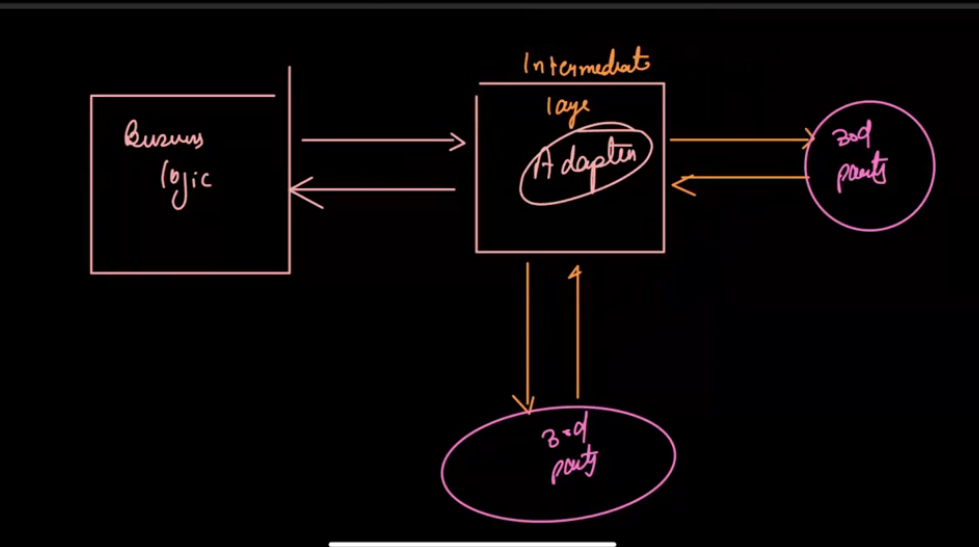 Business
logic
Intermediate
laye
Adapter
3rd
party
3rd
party